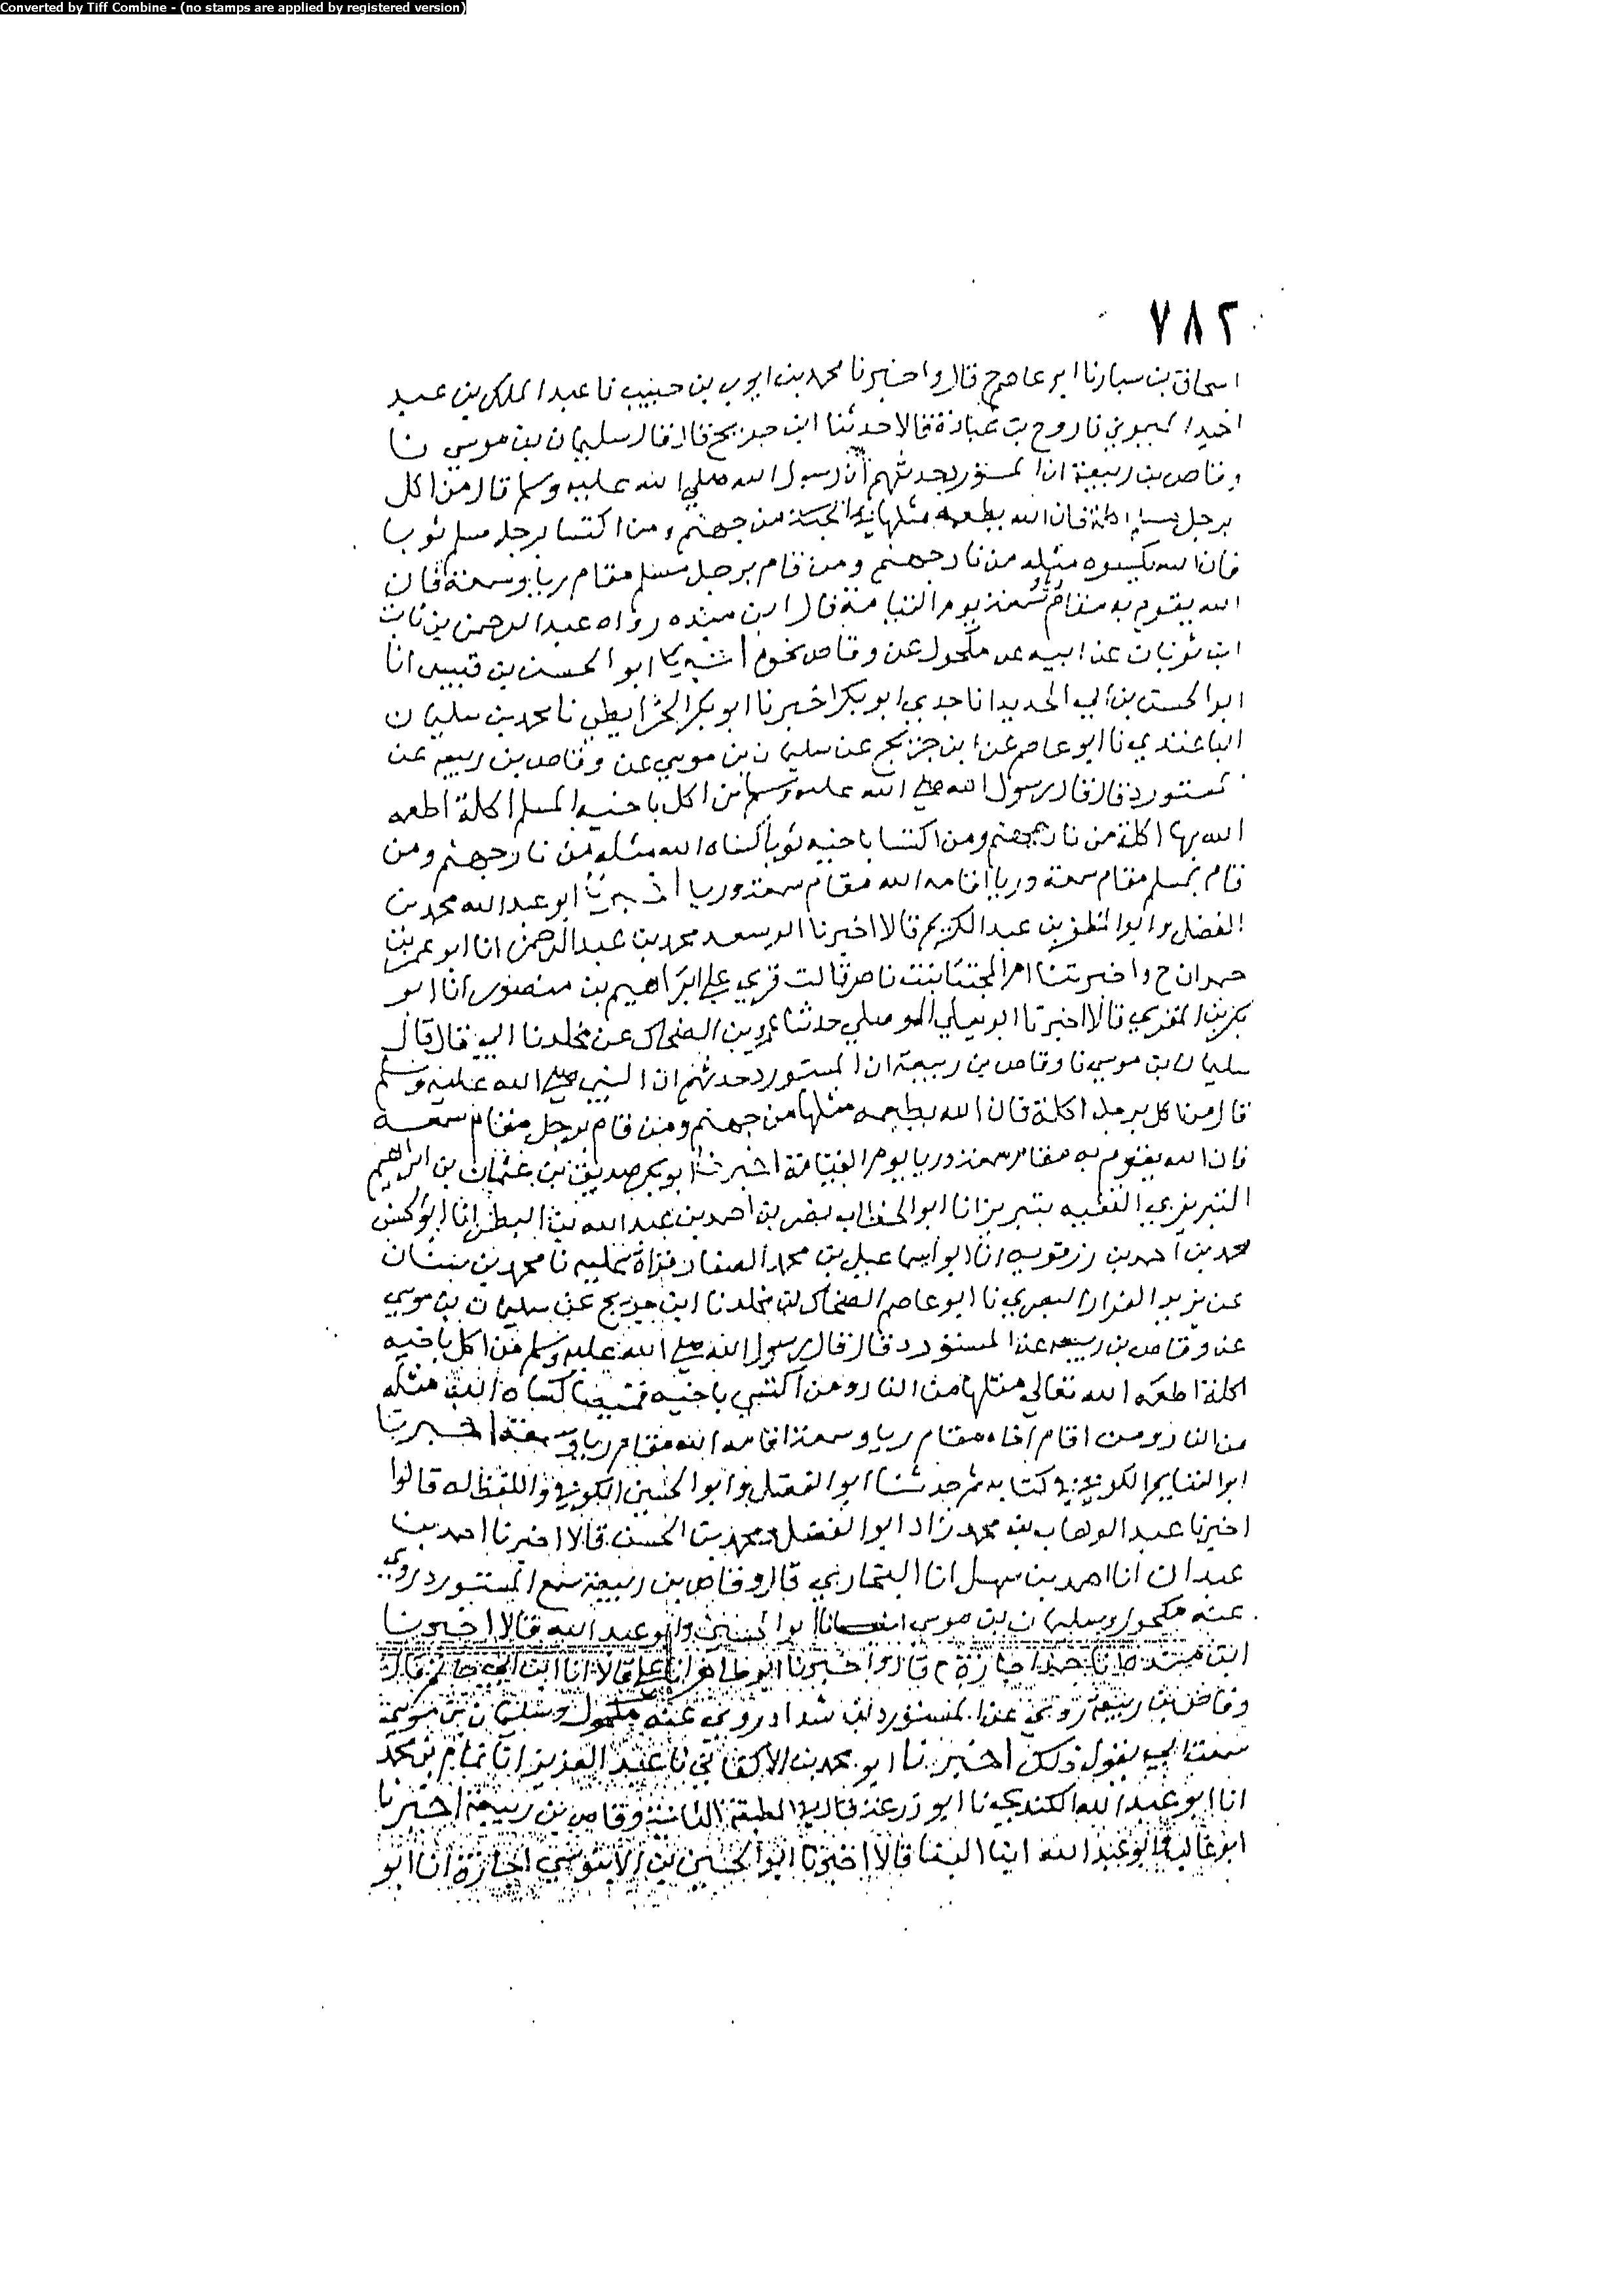 Converted by Tiff Combine - (no stamps are applied by registered version)
٧٨٢
اسحاق بن سيار نا ابو عاصم ح قال واخبرنا محمد بن ايوب بن حبيب نا عبد الملك بن عبد
نا روح بن عبادة قالا حدثنا ابن جريج قال قال سليمان بن موسى نا
وقاص بن ربيعة ان المستورد حدثهم ان رسول الله صلى الله عليه وسلم قال من اكل
برجل مسلم اكلة فان الله يطعمه مثلها من جهنم ومن اكتسا برجل مسلم ثوبا
فان الله يكسوه مثله من نار جهنم ومن قام برجل مسلم مقام ريا وسمعة فان
الله يقوم به مقام سمعة يوم القيامة قال ابن منده رواه عبد الرحمن بن ثابت
ابن ثوبان عن ابيه عن مكحول عن وقاص نحوه ابو الحسن بن قبيس انا
ابو الحسن بن ابي الحديد انا جدي ابو بكر اخبرنا ابو بكر الخرايطي نا محمد بن سليمان
الباغندي نا ابو عاصم عن ابن جريج عن سليمان بن موسي عن وقاص بن ربيعه عن
قال قال رسول الله صلى الله عليه وسلم من اكل باخيه المسلم اكلة اطعمه
الله بها اكلة من نار جهنم ومن اكتسا باخيه ثوبا كساه الله مثله من نار جهنم ومن
قام بمسلم مقام سمعة وريا اقامه الله مقام سمعة وريا اخبرنا ابو عبد الله محمد بن
الفضل وابو المظفر بن عبد الكريم قالا اخبرنا ابو سعد محمد بن عبد الرحمن انا ابو عمرو بن
حمدان ح واخبرتنا ام المجتبا بنت ناصر قالت قري علي ابراهيم بن منصور انا ابو
بكر بن المقري قالا اخبرنا ابو يعلي الموصلي حدثنا عمرو بن الضحاك بن مخلد نا ابي قال قال
سليمان بن موسي نا وقاص بن ربيعة ان المستورد حدثهم ان النبي صلى الله عليه وسلم
قال من اكل برجل اكلة فان الله يطعمه مثلها من جهنم ومن قام برجل مقام سمعة
فان الله يقوم به مقام سمعة وريا يوم القيامة اخبرنا ابو بكر صديق بن عثمان بن ابراهيم
التبريزي الفقيه بتبريز انا ابو الخطاب نصر بن احمد بن عبد الله بن البطر انا ابو الحسن
محمد بن احمد بن رزقويه انا ابو اسماعيل بن محمد الصفار قراة عليه نا محمد بن سنان
عن يزيد القزاز البصري نا ابو عاصم الضحاك بن مخلد نا ابن جريج عن سليمان بن موسي
عن وقاص بن ربيعه عن المستورد قال قال رسول الله صلى الله عليه وسلم من اكل باخيه
اكلة اطعمه الله تعالي مثلها من النار ومن اكتسي باخيه قميصا كساه الله مثله
من النار ومن اقام اخاه مقام ريا وسمعة اقامه الله مقام ريا وسمعة اخبرنا
ابو الغنايم الكوفي في كتابه ثم حدثنا ابو الفضل وابو الحسين الكوفي واللفظ له قالوا
اخبرنا عبد الوهاب بن محمد زاد ابو الفضل ومحمد بن الحسن قالا اخبرنا احمد بن
عبدان انا احمد بن سهل انا البخاري قال وقاص بن ربيعة سمع المستورد روي
عنه مكحول وسليمان بن موسي ابو الحسين وابو عبد الله قالا اخبرنا
ابن منده انا حمد اجازة ح قال واخبرنا ابو طاهر انا علي قالا انا ابن ابي حاتم قال
وقاص بن ربيعة روي عن المستورد بن شداد روي عنه مكحول وسليمان بن موسي
سمعت ابي يقول ذلك اخبرنا ابو محمد بن الاكفاني نا عبد العزيز انا تمام بن محمد
انا ابو عبد الله الكندي نا ابو زرعة قال في الطبقة الثانية وقاص بن ربيعة اخبرنا
ابو غالب وابو عبد الله ابنا البنا قالا اخبرنا ابو الحسين بن الابنوسي اجازة انا ابو